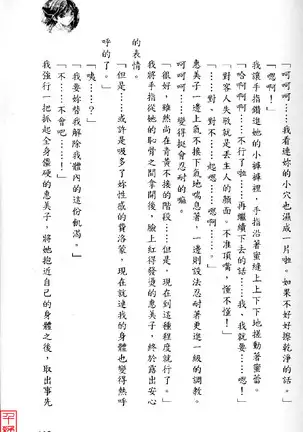 「呵呵呵……我看連妳的小穴也濕成一片啦。如果不好好擦乾淨的話……」
「嗯啊！」
我讓手指鑽進她的小褲褲裡，手指沿著蜜縫上上下下地搔動著蜜蕾。
「哈啊啊啊……不行了……再繼續下去的話……我、我就要……嗯！」
「對客人失敗就是丟主人的顏面。不准頂嘴，懂不懂！」
「……對、對不起……嗯啊……嗯。」
惠美子一邊上氣不接下氣地喘息著，一邊則設法忍耐著更進一級的調教。
呵呵呵……變得挺會忍耐的嘛。
「很好，雖然尚在青黃不接的階段……但是，現在到這種程度就行了。」
我將手指從她的恥骨之間拿開後，臉上紅得發燙的惠美子，終於露出安心
的表情。
「但是……或許是吸多了妳性感的費洛蒙，現在就連我的身體也變得熱呼
呼的了。」
「咦……？」
「我要妳替我解除我體內的這份飢渴。」
「不……不會吧……！」
我強行一把抓起全身僵硬的惠美子，將她抱近自己的身體之後，取出事先